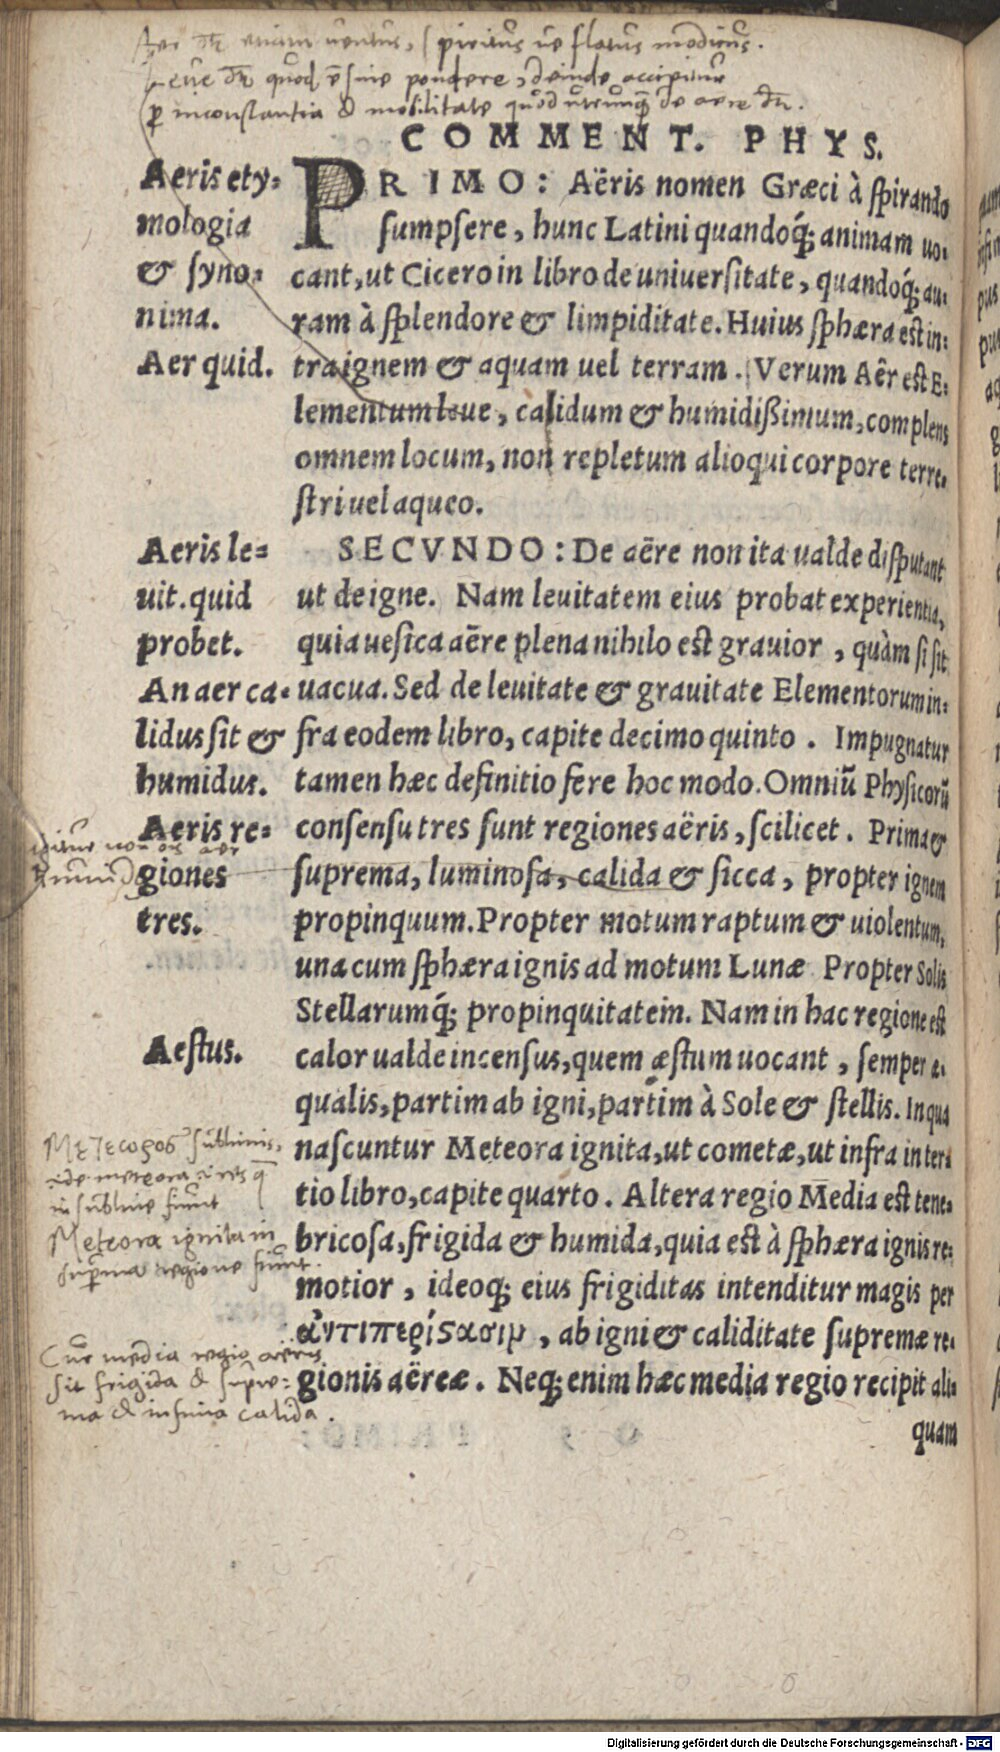 Aer etiam uentus, spiritus ue flatus modicus.
Leue quod sine pondere, deinde accipitur
inconstantia & mobilitate quod utrunque de aere
COMMENT. PHYS.
Aeris ety-
mologia
& syno-
nima.
Aer quid.
PRIMO: Aëris nomen Græci à spirando
sumpsere, hunc Latini quandoq́; animam uo-
cant, ut Cicero in libro de uniuersitate, quandoq́; au-
ram à splendore & limpiditate. Huius sphæra est in-
tra ignem & aquam uel terram. Verum Aêr est E-
lementum leue, calidum & humidißimum, complens
omnem locum, non repletum alioqui corpore terre-
stri uel aqueo.
Aeris le-
uit. quid
probet.
An aer ca-
lidus sit &
humidus.
Aeris re-
giones
tres.
Aestus.
SECVNDO: De aëre non ita ualde disputant
ut de igne. Nam leuitatem eius probat experientia,
quia uesica aëre plena nihilo est grauior, quàm si sit
uacua. Sed de leuitate & grauitate Elementorum in-
fra eodem libro, capite decimo quinto. Impugnatur
tamen hæc definitio fere hoc modo. Omniũ Physicorũ
consensu tres sunt regiones aëris, scilicet. Prima &
suprema, luminosa, calida & sicca, propter ignem
propinquum. Propter motum raptum & uiolentum,
una cum sphæra ignis ad motum Lunæ Propter Solis
Stellarumq́; propinquitatem. Nam in hac regione est
calor ualde incensus, quem æstum uocant, semper æ-
qualis, partim ab igni, partim à Sole & stellis. In qua
nascuntur Meteora ignita, ut cometæ, ut infra in ter-
tio libro, capite quarto. Altera regio Media est tene-
bricosa, frigida & humida, quia est à sphæra ignis re-
motior, ideoq; eius frigiditas intenditur magis per
ἀντιπερίστασιν, ab igni & caliditate supremæ re-
gionis aëreæ. Neq; enim hæc media regio recipit ali-
quam
non aer
humid
Μετέωρος sublimis,
meteora res
in sublime fiunt
Meteora ignita in
suprema regione fiunt.
Cur media regio aeris
sit frigida & supre-
ma & infima calida.
Digitalisierung gefördert durch die Deutsche Forschungsgemeinschaft - DFG